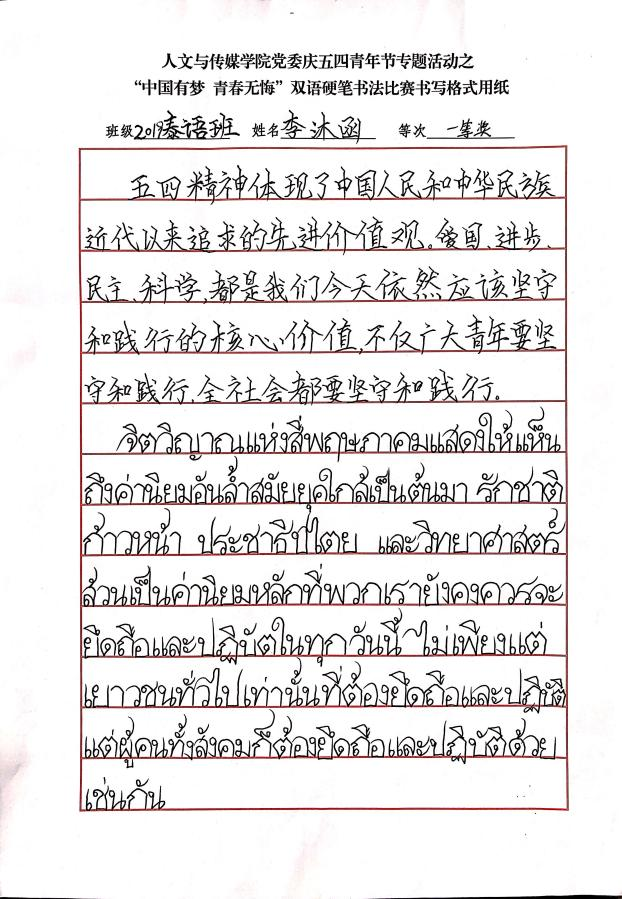 人文与传媒学院党委庆五四青年节专题活动之
“中国有梦 青春无悔”双语硬笔书法比赛书写格式用纸
班级 2019泰语班 姓名 李沐函 等次 一等奖
五四精神体现了中国人民和中华民族
近代以来追求的先进价值观。爱国、进步、
民主、科学,都是我们今天依然应该坚守
和践行的核心价值,不仅广大青年要坚
守和践行,全社会都要坚守和践行。
จิตวิญาณแห่งสี่พฤษภาคมแสดงให้เห็น
ถึงค่านิยมอันล้ำสมัยยุคใกล้เป็นต้นมา รักชาติ
ก้าวหน้า ประชาธิปไตย และวิทยาศาสตร์
ล้วนเป็นค่านิยมหลักที่พวกเรายังคงควรจะ
ยึดถือและปฏิบัติในทุกวันนี้ ไม่เพียงแต่
เยาวชนทั่วไปเท่านั้นที่ต้องยึดถือและปฏิบัติ
แต่ผู้คนทั้งสังคมก็ต้องยึดถือและปฏิบัติด้วย
เช่นกัน